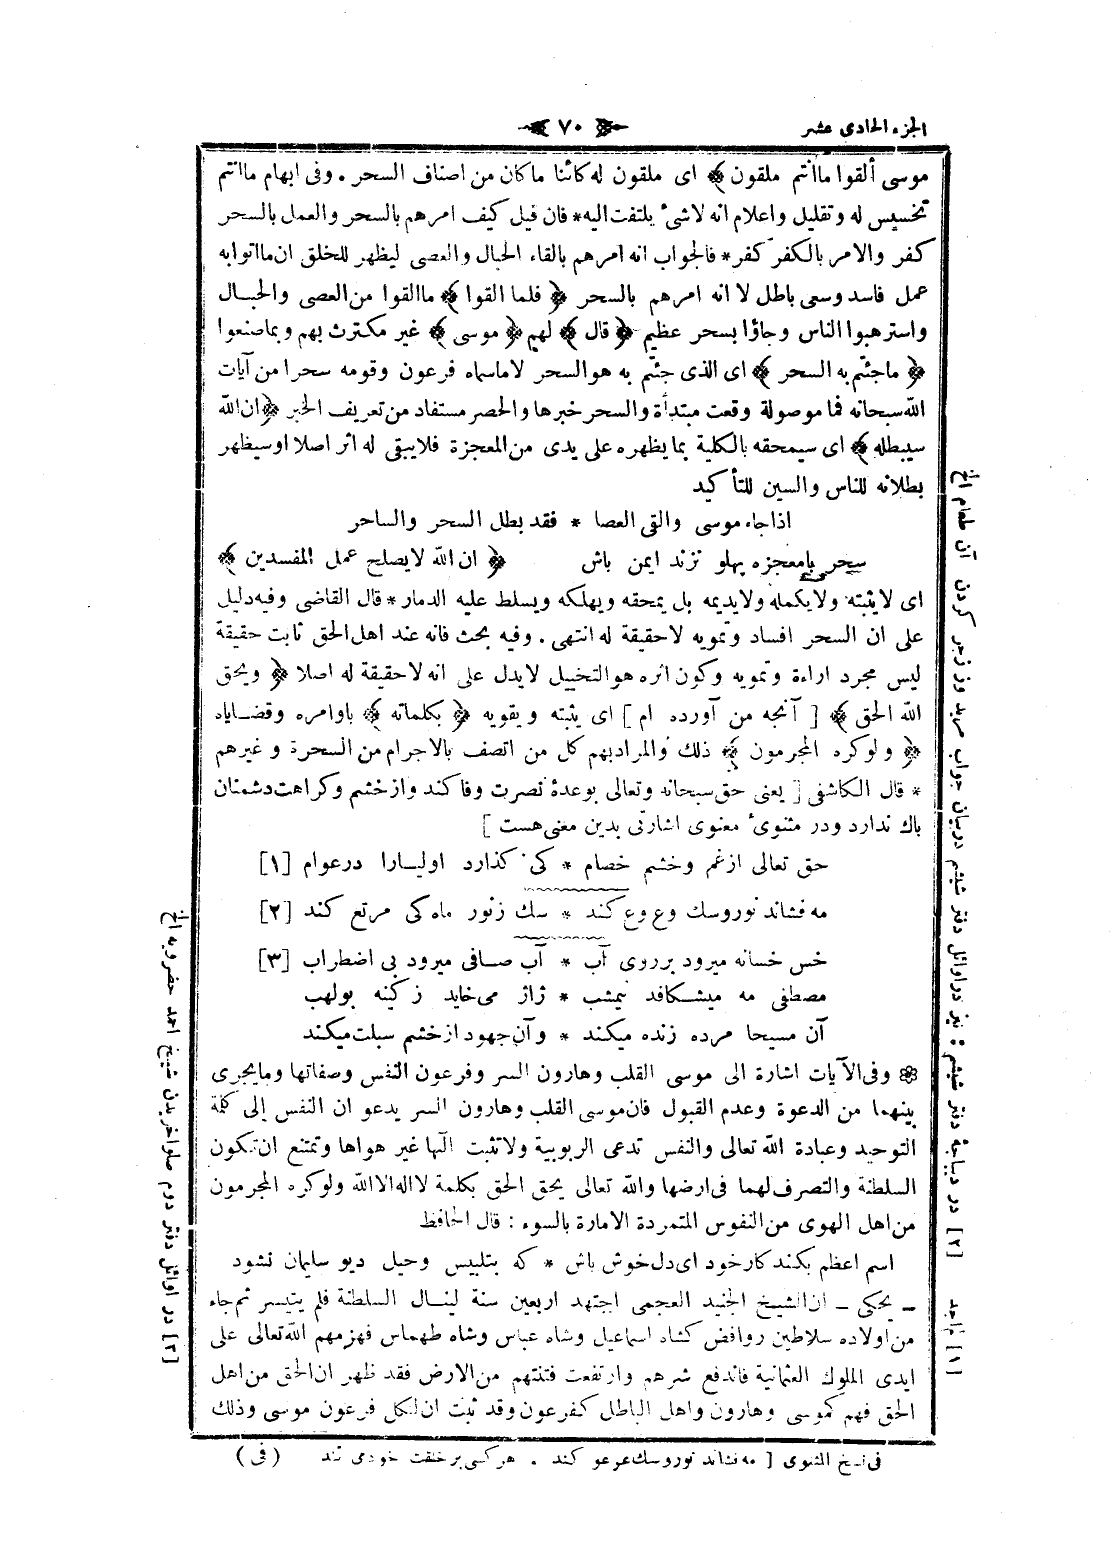 الجزء الحادى عشر
﴿ ٧٠ ﴾
موسى ألقوا ما انتم ملقون ﴾ اى ملقون له كائنا ما كان من اصناف السحر . وفى ابهام ما انتم
تخسيس له وتقليل واعلام انه لا شئ يلتفت اليه * فان قيل كيف امرهم بالسحر والعمل بالسحر
كفر والامر بالكفر كفر * فالجواب انه امرهم بالقاء الحبال والعصى ليظهر للخلق ان ما اتوا به
عمل فاسد وسعى باطل لا انه امرهم بالسحر ﴿ فلما القوا ﴾ ما القوا من العصى والحبال
واسترهبوا الناس وجاؤا بسحر عظيم ﴿ قال ﴾ لهم ﴿ موسى ﴾ غير مكترث بهم وبما صنعوا
﴿ ما جئتم به السحر ﴾ اى الذى جئتم به هو السحر لا ما سماه فرعون وقومه سحرا من آيات
الله سبحانه فما موصولة وقعت مبتدأة والسحر خبرها والحصر مستفاد من تعريف الخبر ﴿ ان الله
سيبطله ﴾ اى سيمحقه بالكلية بما يظهره على يدى من المعجزة فلا يبقى له اثر اصلا او سيظهر
بطلانه للناس والسين للتأكيد
اذا جاء موسى والقى العصا * فقد بطل السحر والساحر
سحر با معجزه پهلو نزند ايمن باش ﴿ ان الله لا يصلح عمل المفسدين ﴾
اى لا يثبته ولا يكمله ولا يديمه بل يمحقه ويهلكه ويسلط عليه الدمار * قال القاضى وفيه دليل
على ان السحر افساد وتمويه لا حقيقة له انتهى . وفيه بحث فانه عند اهل الحق ثابت حقيقة
ليس مجرد اراءة وتمويه وكون اثره هو التخييل لا يدل على انه لا حقيقة له اصلا ﴿ ويحق
الله الحق ﴾ [ آنجه من آورده ام ] اى يثبته ويقويه ﴿ بكلماته ﴾ باوامره وقضاياه
﴿ ولو كره المجرمون ﴾ ذلك والمراد بهم كل من اتصف بالاجرام من السحرة وغيرهم
* قال الكاشفى [ يعنى حق سبحانه وتعالى بوعدۀ نصرت وفا كند واز خشم وكراهت دشمنان
باك ندارد ودر مثنوىء معنوى اشارتى بدين معنى هست ]
حق تعالى از غم وخشم خصام * كى كذارد اوليارا در عوام [١]
مه فشاند نور وسك وع وع كند * سك ز نور ماه كى مرتع كند [٢]
خس خسانه ميرود بر روى آب * آب صافى ميرود بى اضطراب [٣]
مصطفى مه ميشكافد نيمشب * ژاژ مى خايد ز كينه بولهب
آن مسيحا مرده زنده ميكند * وآن جهود از خشم سبلت ميكند
وفى الآيات اشارة الى موسى القلب وهارون السر وفرعون النفس وصفاتها وما يجرى
بينهما من الدعوة وعدم القبول فان موسى القلب وهارون السر يدعو ان النفس إلى كلمة
التوحيد وعبادة الله تعالى والنفس تدعى الربوبية ولا تثبت الها غير هواها وتمتنع ان تكون
السلطنة والتصرف لهما فى ارضها والله تعالى يحق الحق بكلمة لا اله الا الله ولو كره المجرمون
من اهل الهوى من النفوس المتمردة الامارة بالسوء : قال الحافظ
اسم اعظم بكند كار خود اى دل خوش باش * كه بتلبيس وحيل ديو سليمان نشود
ـ يحكى ـ ان الشيخ الجنيد العجمى اجتهد اربعين سنة لينال السلطنة فلم يتيسر ثم جاء
من اولاده سلاطين روافض كشاه اسماعيل وشاه عباس وشاه طهماس فهزمهم الله تعالى على
ايدى الملوك العثمانية فاندفع شرهم وارتفعت فتنتهم من الارض فقد ظهر ان الحق من اهل
الحق فهم كموسى وهارون واهل الباطل كفرعون وقد ثبت ان لكل فرعون موسى وذلك
فى نسخ المثنوى [ مه فشاند نور وسك عو عو كند . هر كسى بر خلقت خود مى تند (فى)
[١] [٢] در ديباجۀ دفتر ششم : نيز در اوائل دفتر ششم در بيان جواب مريد وزجر كردن آن طعام الخ
[٣] در اوائل دفتر دوم حلوا خريدن شيخ احمد خضرويه الخ